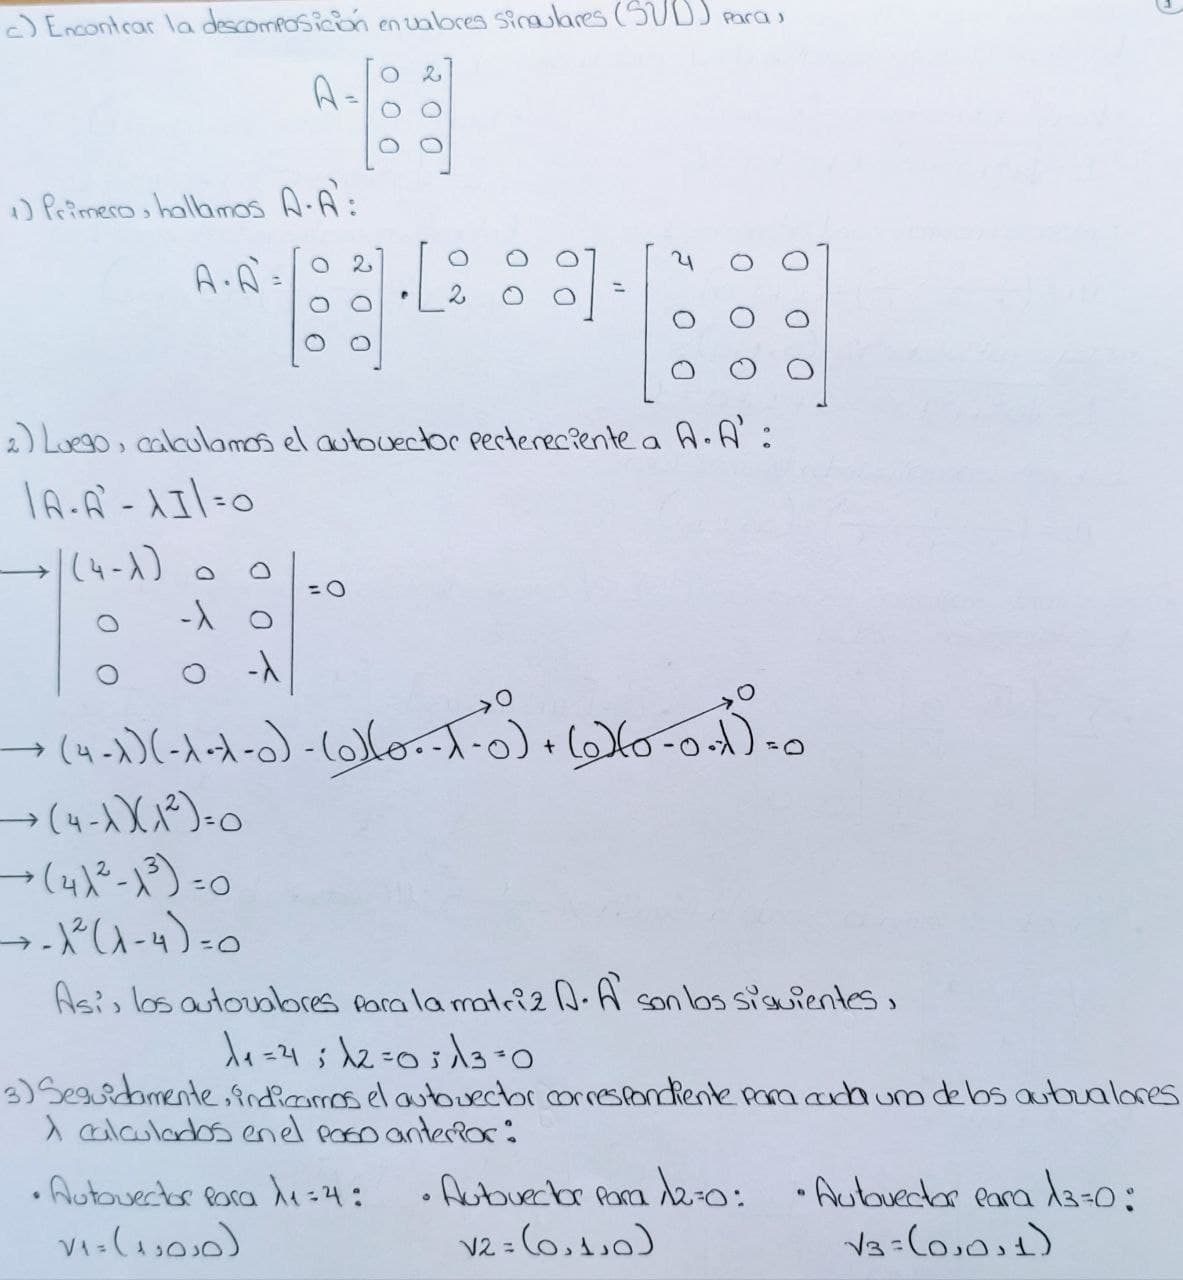 c) Encontrar la descomposición en valores singulares (SVD) para,
A = [0 2
0 0
0 0]
1) Primero, hallamos A·A':
A·A' = [0 2; 0 0; 0 0] · [0 0 0; 2 0 0] = [4 0 0; 0 0 0; 0 0 0]
2) Luego, calculamos el autovector perteneciente a A·A':
|A·A' - λI| = 0
→ |(4-λ) 0 0
0 -λ 0| = 0
0 0 -λ
→ (4-λ)(-λ·-λ-0) - (0)(0·-λ-0) + (0)(0-0·-λ) = 0
→ (4-λ)(λ²) = 0
→ (4λ²-λ³) = 0
→ -λ²(λ-4) = 0
Así, los autovalores para la matriz A·A' son los siguientes,
λ1 = 4 ; λ2 = 0 ; λ3 = 0
3) Seguidamente, indicamos el autovector correspondiente para cada uno de los autovalores
λ calculados en el paso anterior:
• Autovector para λ1 = 4: • Autovector para λ2 = 0: • Autovector para λ3 = 0:
v1 = (1,0,0) v2 = (0,1,0) v3 = (0,0,1)